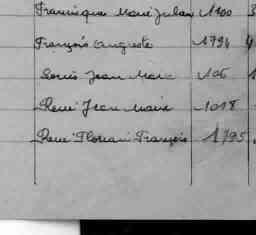 Françoise Marie Julan 1800 3
François Auguste 1794 4
Louis Jean Marie 106 1
René Jean Marie 1018
René Florian François 1795